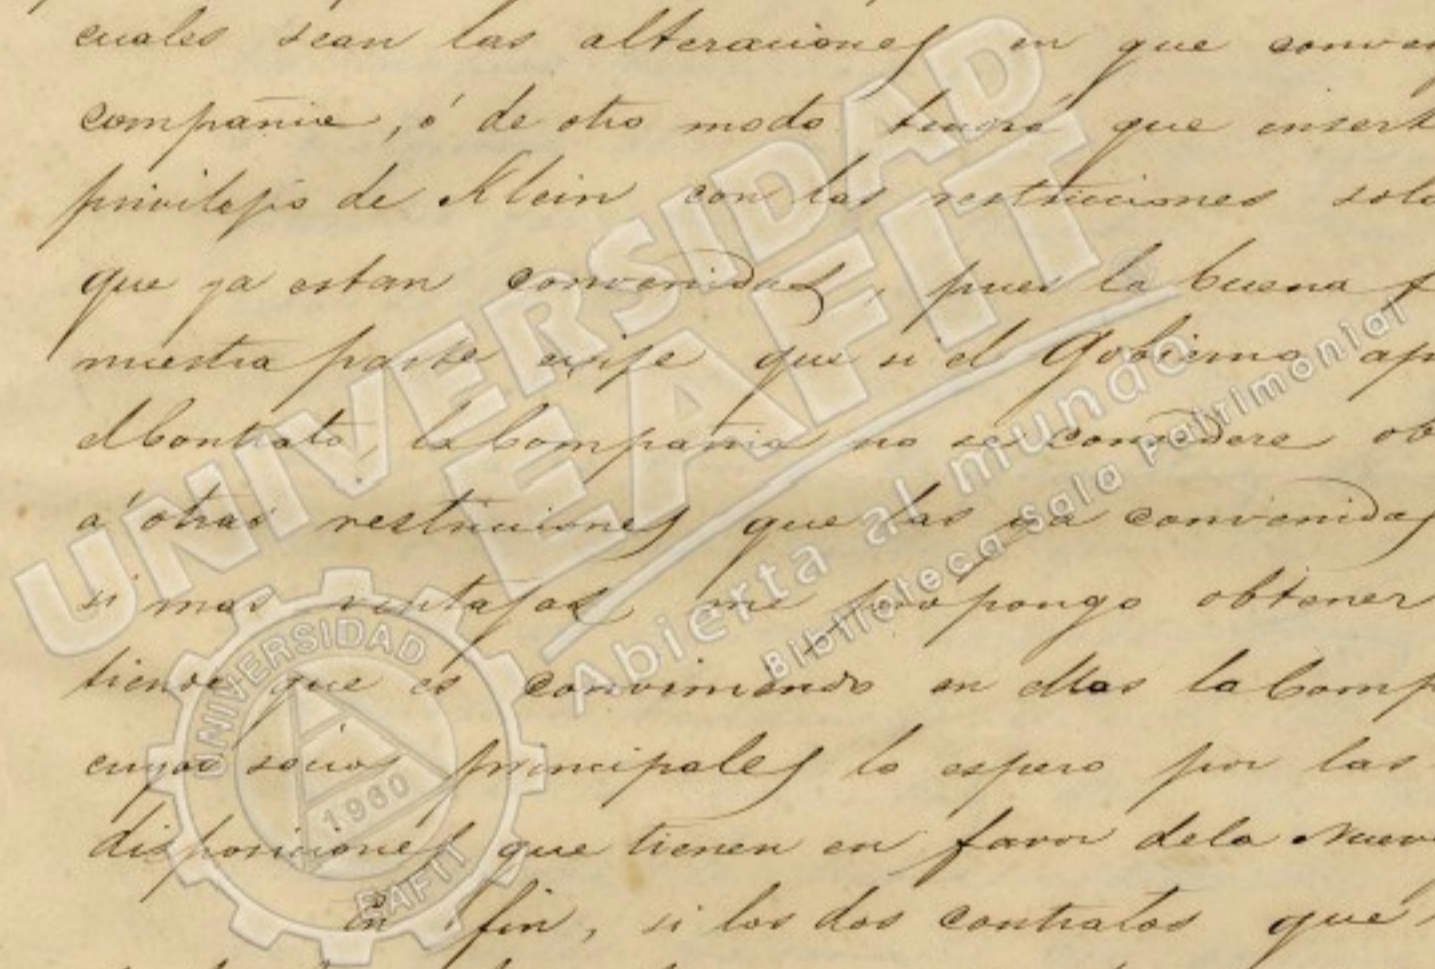 cuales sean las alteraciones en que conven
compañia, ó de otro modo tendré que insert
privilejio de Klein con las restriciones solo
que ya estan convenidas, pues la buena f
nuestra parte exije que si el Gobierno ap
el Contrato, la Compañia no se considere ob
a' otras restriciones que las ya convenidas
si mas ventajas me propongo obtener
tiende que es conviniendo en ellas la Comp
cuyos socios principales lo espero por las
disposiciones que tienen en favor de la Nuev
En fin, si los dos contratos que
UNIVERSIDAD
EAFIT
Abierta al mundo
Biblioteca Sala Patrimonial
UNIVERSIDAD
1960
EAFIT